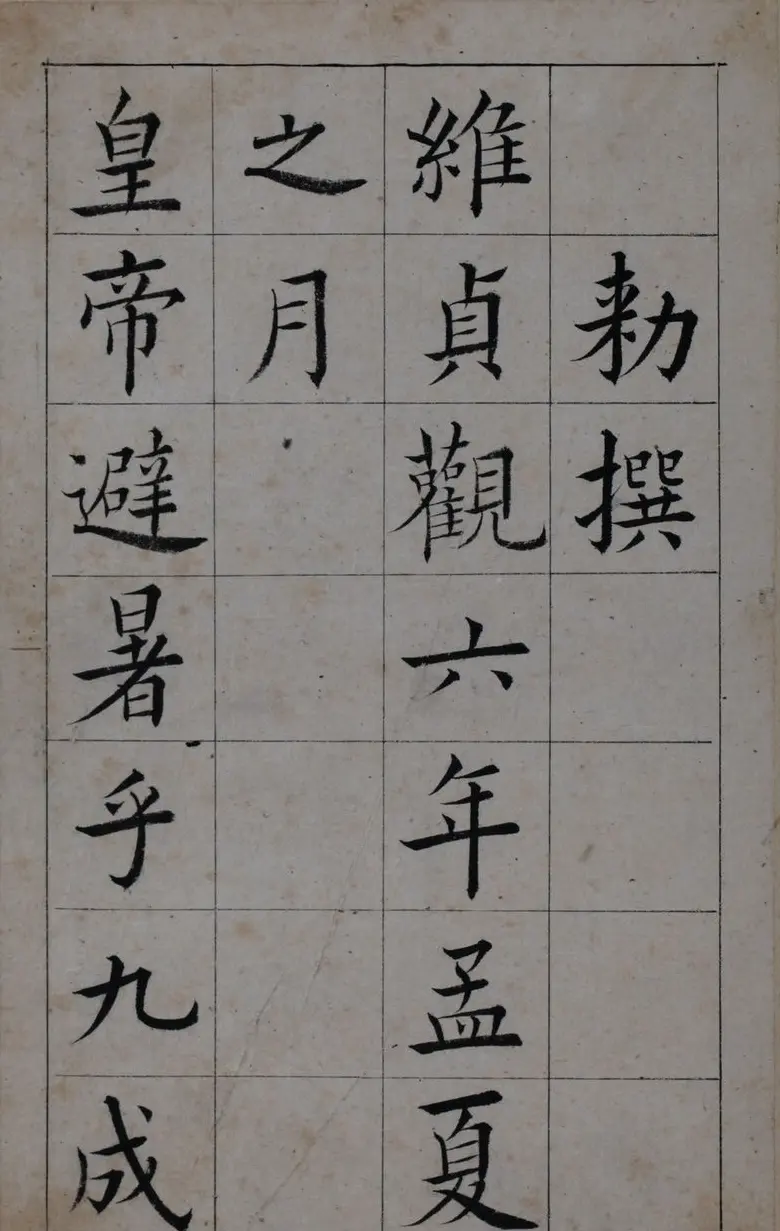 勑撰
維貞觀六年孟夏
之月
皇帝避暑乎九成